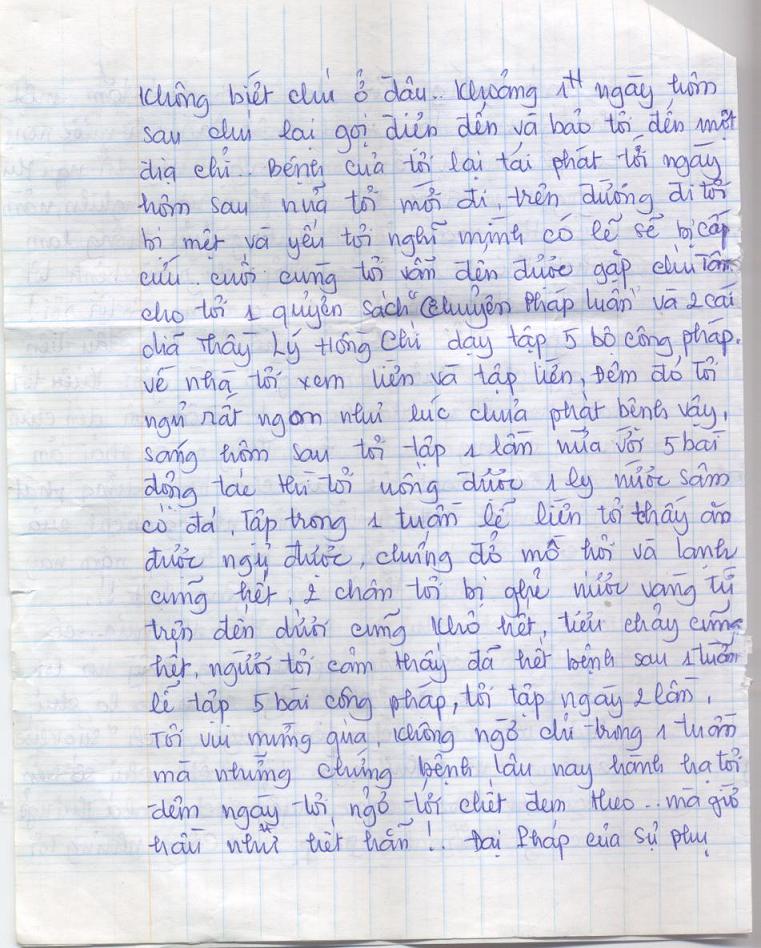 không biết chú ở đâu.. khoảng 1tH ngày hôm
sau chú lại gọi điện đến và bảo tôi đến một
địa chỉ.. Bệnh của tôi lại tái phát tôi ngày
hôm sau nữa tôi mới đi, trên đường đi tôi
bị mệt và yếu tôi nghĩ mình có lẽ sẽ bị cấp
cứu.. cuối cùng tôi vẫn đến được gặp chú Tâm
cho tôi 1 quyển sách "Chuyển Pháp luân" và 2 cái
đĩa Thầy Lý Hồng Chí dạy tập 5 bộ công pháp.
về nhà tôi xem liền và tập liền, Đêm đó tôi
ngủ rất ngon như lúc chưa phát bệnh vậy,
sáng hôm sau tôi tập 1 lần nữa với 5 bài
động tác thì tôi uống được 1 ly nước sâm
có đá, Tập trong 1 tuần lễ liền tôi thấy ăn
được ngủ được, chứng đổ mồ hôi và lạnh
cũng hết, 2 chân tôi bị ghẻ nước vàng từ
trên đến dưới cũng khô hết, tiêu chảy cũng
hết, người tôi cảm thấy đã hết bệnh sau 1 tuần
lễ tập 5 bài công pháp, tôi tập ngày 2 lần,
Tôi vui mừng quá, không ngờ chỉ trong 1 tuần
mà những chứng bệnh lâu nay hành hạ tôi
đêm ngày tôi ngỡ tới chết đem theo.. mà giờ
hầu như hết hẳn!.. Đại Pháp của Sư phụ